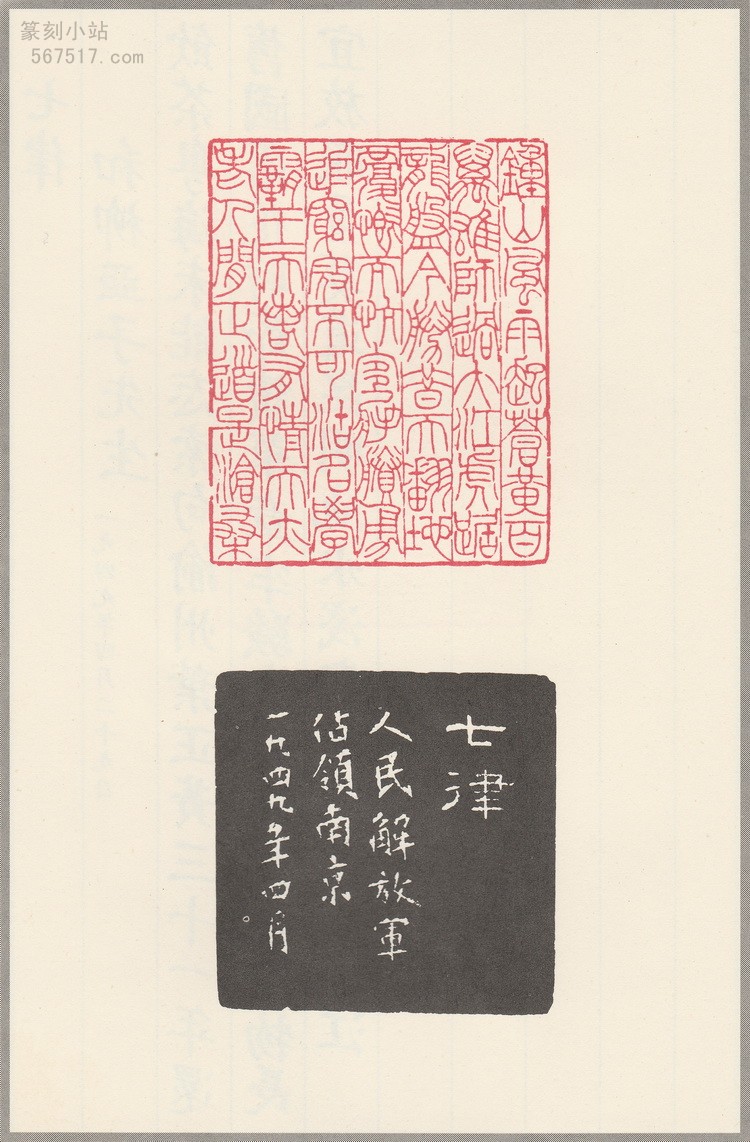 篆刻小站
567517.com
鍾山風雨起蒼黃百
萬雄師過大江虎踞
龍盤今勝昔天翻地
覆慨而慷宜將賸勇
追窮寇不可沽名學
霸王天若有情天亦
老人間正道是滄桑
七律
人民解放軍
佔領南京
一九四九年四月。